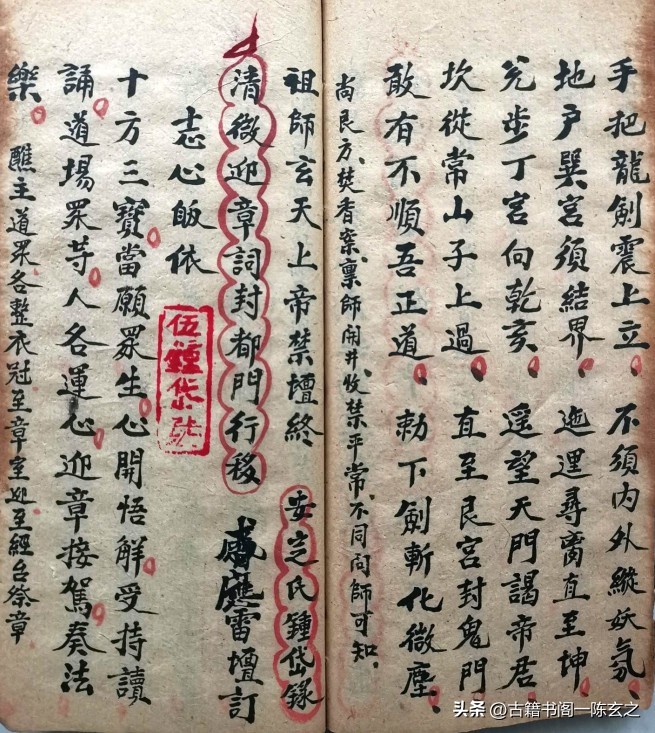 手把龍劍震上立、不須内外縱妖氛、
地戶巽宮須結界、迤逦尋雷直至坤
兌步丁宮向乾亥、遥望天門謁帝君、
坎從常山子上過、直至艮宮封鬼門
敢有不順吾正道、勅下劍斬化微塵、
尚艮方、焚香案、禀師開井、收禁平常、不同问師可知、
祖師玄天上帝禁壇終
安芝氏鍾岱錄
清微迎章詞封都門行移
雷壇訂
志心皈依
伍鍾岱
十方三寶當願眾生心開悟解受持讀
誦道場眾等人各運心迎章接駕奏法
樂。醮主道眾各整衣冠至章室迎至經台
章
头条 @古籍书阁一陈玄之